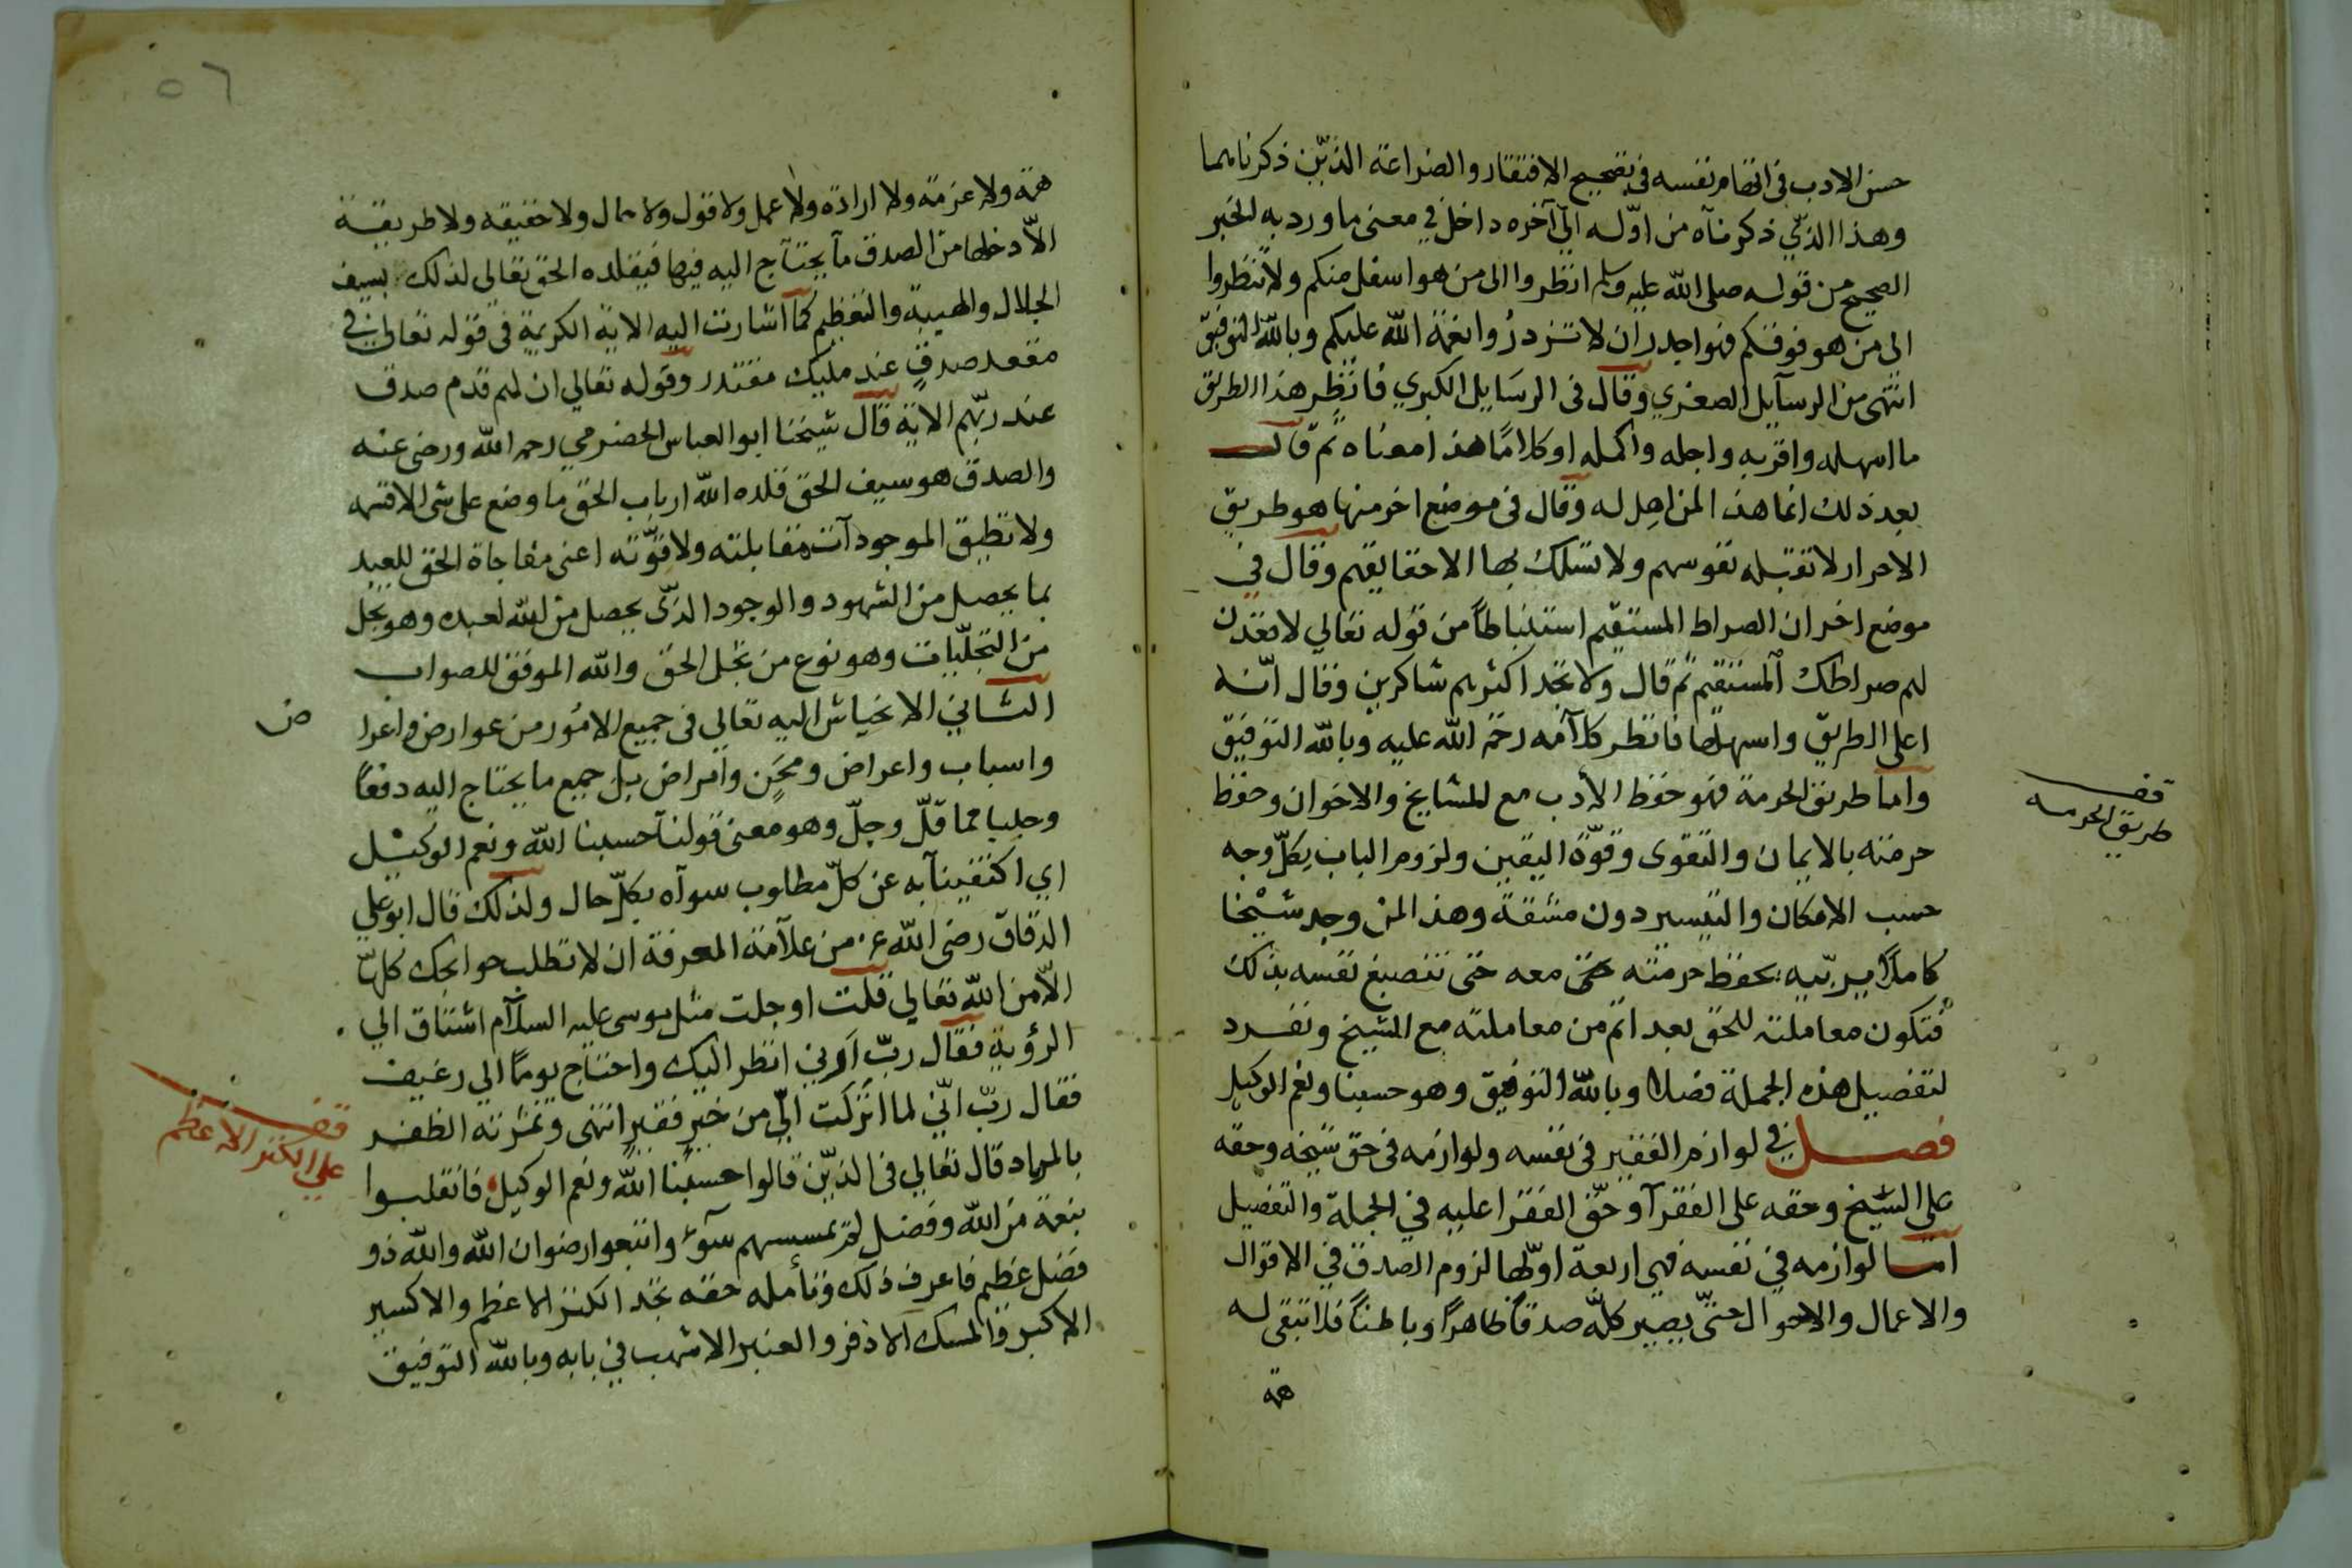 حسن الادب فى اتهام نفسه فى تصحيح الافتقار والضراعة الذين ذكرناهما
وهذا الذي ذكرناه من اوّله الى آخره داخل في معنى ما ورد به الخبر
الصحيح من قوله صلى الله عليه وسلم انظروا الى من هو اسفل منكم ولا تنظروا
الى من هو فوقكم فهو اجدر ان لا تزدرُوا نعمة الله عليكم وبالله التوفيق
انتهى من الرسآيل الصغري وقال فى الرسَايل الكبري فانظر هذا الطريق
ما اسهله واقربه واجله واكمله او كلامًا هذا معناه ثم قال
بعد ذلك انما هذا لمن اهل له وقال فى موضع اخر منها هو طريق
الاحرار لا تقبله نفوسهم ولا تسلك بها الا حقايقهم وقال في
موضع اخر ان الصراط المستقيم استنباطاً من قوله تعالي لاقعدن
لهم صراطك المستقيم ثم قال ولا تجد اكثرهم شاكرين وقال انّه
اعلى الطريق واسهلها فانظر كلآمه رحمة الله عليه وبالله التوفيق
واما طريق الحرمة فهو حفظ الأدب مع المشايخ والاخوان وحفظ
حرمته بالايمان والتقوى وقوّة اليقين ولزوم الباب بكلّ وجه
حسب الامكان والتيسير دون مشقة وهذا لمن وجد شيْخا
كاملاً يربّيه بحفظ حرمته حتى معه حتى تنصبغ نفسه بذلك
فتكون معاملته للحق بعد اتم من معاملته مع الشيخ ونفرد
لتفصيل هذه الجملة فصلا وبالله التوفيق وهو حسبنا ونعم الوكيل
فصل في لوازم الفقير فى نفسه ولوازمه فى حق شيخه وحقه
على الشيخ وحقه على الفقرآ وحقّ الفقرا عليه في الجملة والتفصيل
امّا لوازمه في نفسه فهى اربعة اوّلها لزوم الصدق في الاقوال
والاعمال والاحوال حتىّ يصير كلّه صدقاً ظاهرًا وباطناً فلا تبقى له
همة
قف
طريق الحرمه
٥٦
همة ولا عزمة ولا ارادة ولا عمل ولا قول ولا حال ولا حقيقه ولا طريقة
الاّ دخلها من الصدق مآ يحتآج اليه فيها فيقلده الحق تعالي لذلك بسيف
الجلال والهيبة والتعظيم كمآ اشارت اليه الاية الكريمة فى قوله تعالى في
مقعد صدقٍ عند مليك مقتدر وقوله تعالي ان لهم قدم صدق
عند ربّهم الاية قال شيخنا ابو العباس الحضرمي رحمه الله ورضى عنه
والصدق هو سيف الحق قلده الله ارباب الحق ما وضع على شى الا قهره
ولا تطيق الموجودآت مقابلته ولا قوّته اعنى مفاجاة الحق للعبد
بما يحصل من الشهود والوجود الذّى يحصل من الله لعبده وهو تجل
من التجلّيات وهو نوع من تجل الحق والله الموفق للصواب
الثانيْ الانحياش اليه تعالي فى جميع الامُور من عوارض واغرا
ض
واسباب واعراض ومحَنٍ وأمراض بل جميع ما يحتاج اليه دفعًا
وجلبا مما قلّ وجلّ وهو معنى قولنآ حسبنا الله ونعم الوكيْل
اي اكتفينآ به عن كلّ مطلوب سوآه بكلّ حال ولذلك قال ابو علي
الدقاق رضى الله عنه من علآمة المعرفة ان لا تطلب حوايجك كلّها
الاّ من الله تعالي قلت او جلت مثل موسى عليه السلآم اشتاق الي
الرؤية فقال ربّ أرني انظر اليك واحتاج يومًا الي رغيف
فقال ربّ انّي لما انزلت اليّ من خيرٍ فقيرٍ انتهى وثمرته الظفر
بالمراد قال تعالي فى الذّين قالوا حسبنا الله ونعم الوكيل فانقلبوا
بنعمة من الله وفضل لم يمسسهم سوٓء واتبعوا رضوان الله والله ذو
فضل عظيم فاعرف ذلك وتأمله حقه تجد الكنز الاعظم والاكسير
الاكبر والمسك الاذفر والعنبر الاشهب في بابه وبالله التوفيق
قف
على الكنز الاعظم